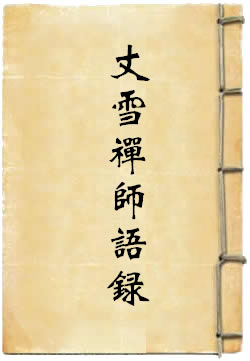 丈雪禪師語録